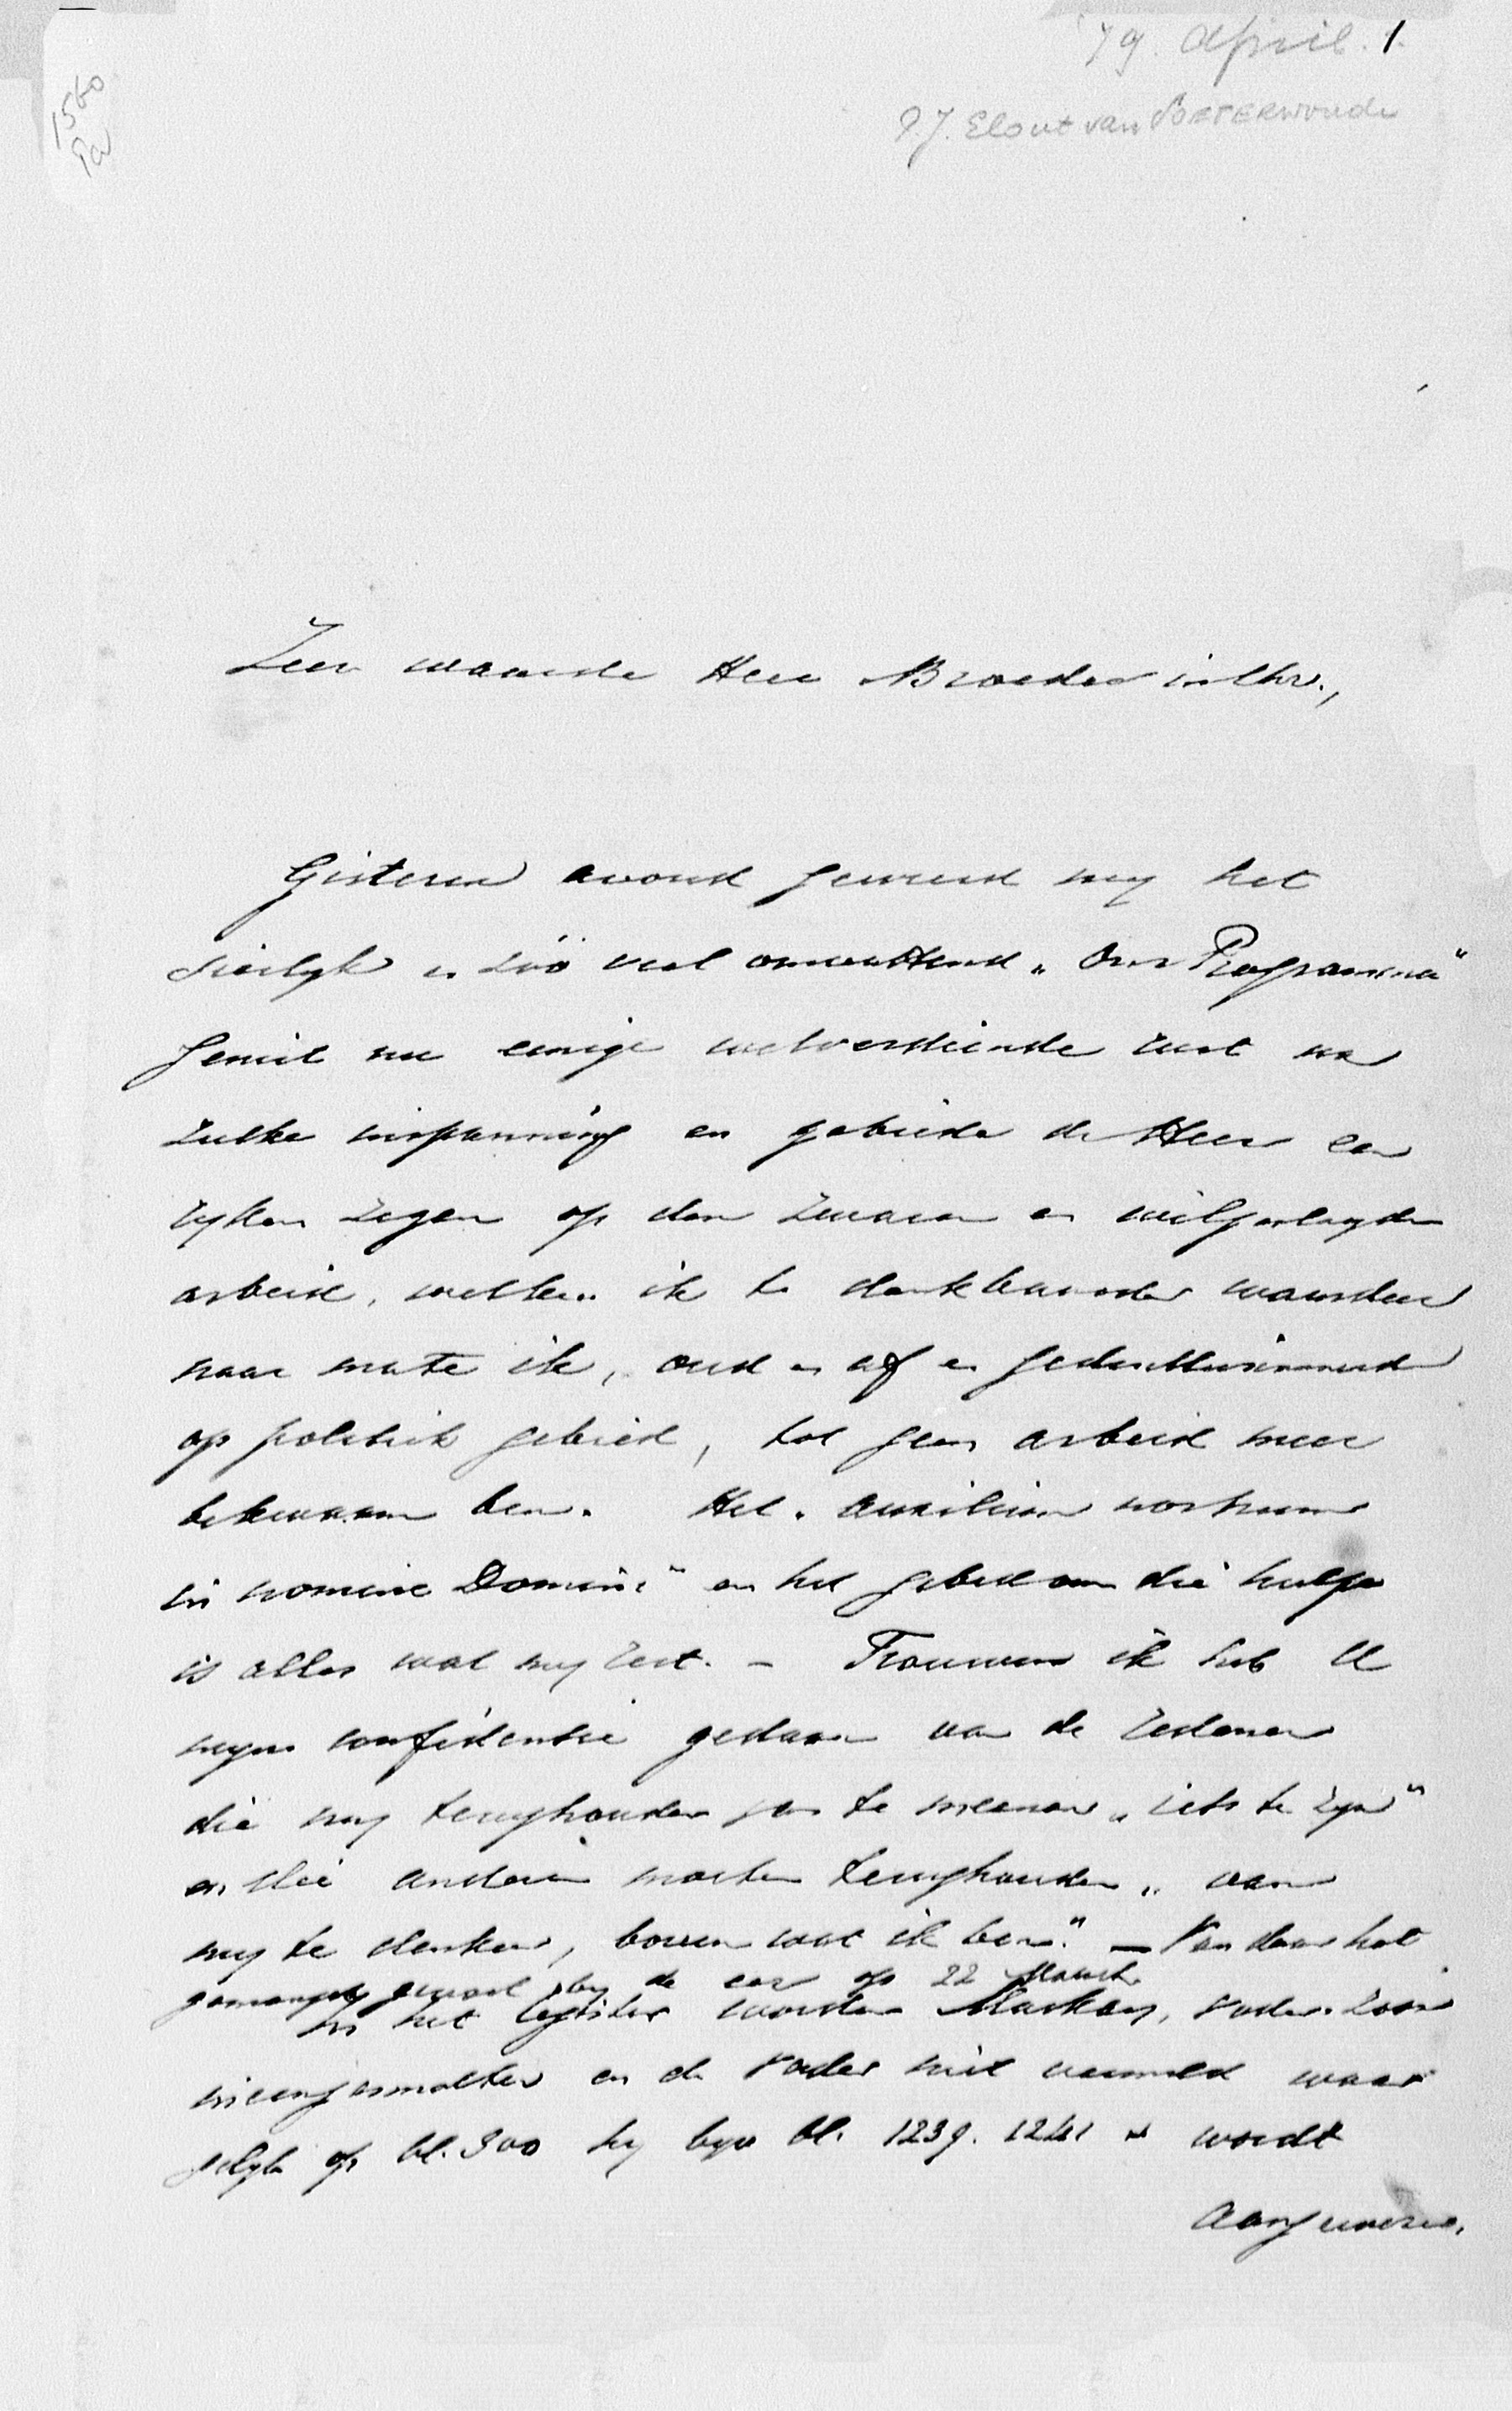 '79. April. 1.
P.J. Elout van SOETERWOUDE
1560
Zeer waarde Heer Broeder in Chr.,
Gisteren avond gewerd my het
sierlyk en zóó veel omvattend „Ons Programma"
Geniet nu eenige welverdiende rust na
zulke inspanning en gebiede de Heer een
ryken zegen op den zwaren en
arbeid, welken ik te dankbaarder waardeer
naar mate ik, oud en af en
op politiek gebied, tot geen arbeid meer
bekwaam ben. Het „auxilium nostrum
in nomine Domini" en het gebed om die hulpe
is alles wat my rest. – Trouwens ik heb U
myne confidentie gedaan van de redenen
die my terughouden van te meenen „iets te zyn"
en die anderen moeten terughouden „van
my te denken, boven wat ik ben." – Van daar het
by de eer op 22 Maart.
In het register worden Mackay, vader en zoon
ineengesmolten en de vader niet vermeld waar
gelyk op bl. 300 hy bl. 1239. 1241 wordt
aangewezen.